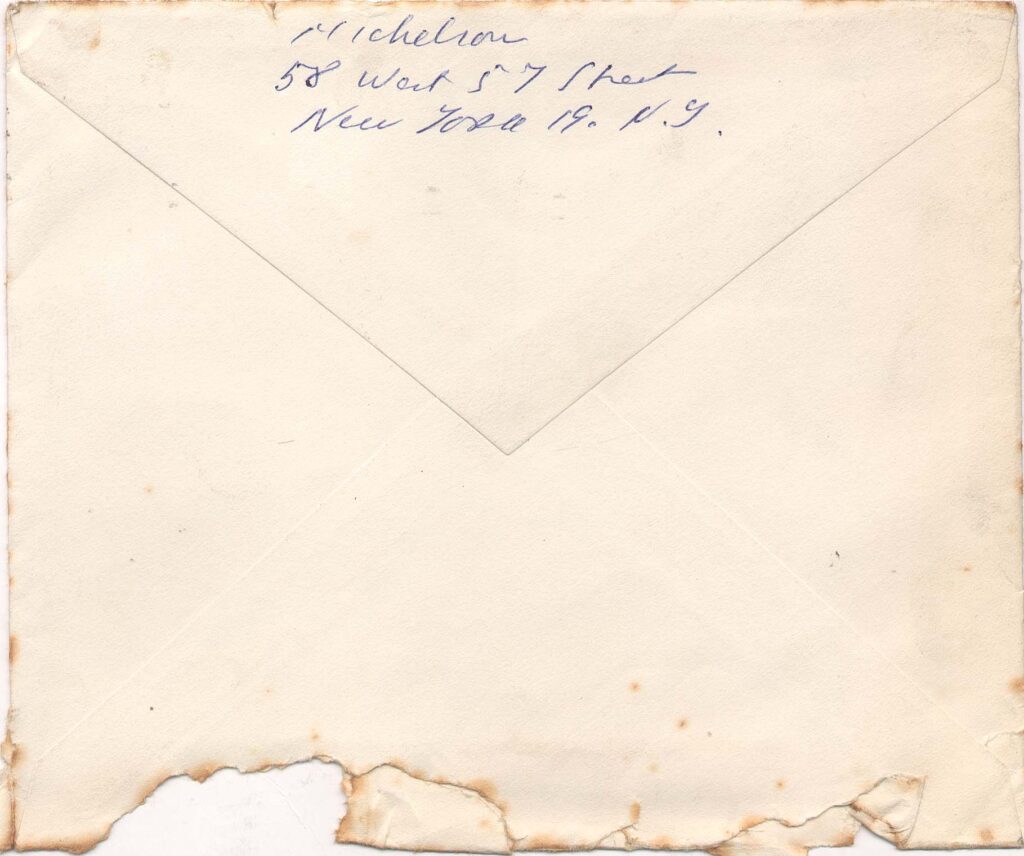 Michelson
58 West 57 Street
New York 19. N.Y.